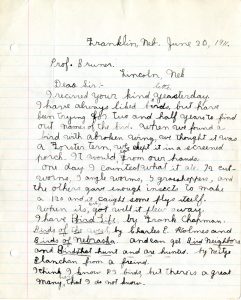 Franklin, Neb. June 20, 1911.
Prof. Bruner.
Lincoln, Neb
Dear Sir:-
I recived your kind yeasterday.
I have always liked birds, but have
ben trying for two and half years to find
out names of the bird. When we found a
bird with a broken wing, we thought it was
a Forster tern, we kept it in a screened
porch. It would from our hands.
one day I counted what it ate. 72 cut-
worms, 3 angle worms, 5 grasshoppers, and
the others gave enough insects to make
a 120 and it caught some fly itself.
When its got well it flew away.
I have Bird Life by Frank Chapman.
Birds of the west by Charles E. Holmes and
Birds of Nebraska. and can get Bird Neighbors
and Birds that hunt and are hunted. by Neltje
Blanchan from a friend.
I think I know 83 birds but there is a great
Many, that I do not know.